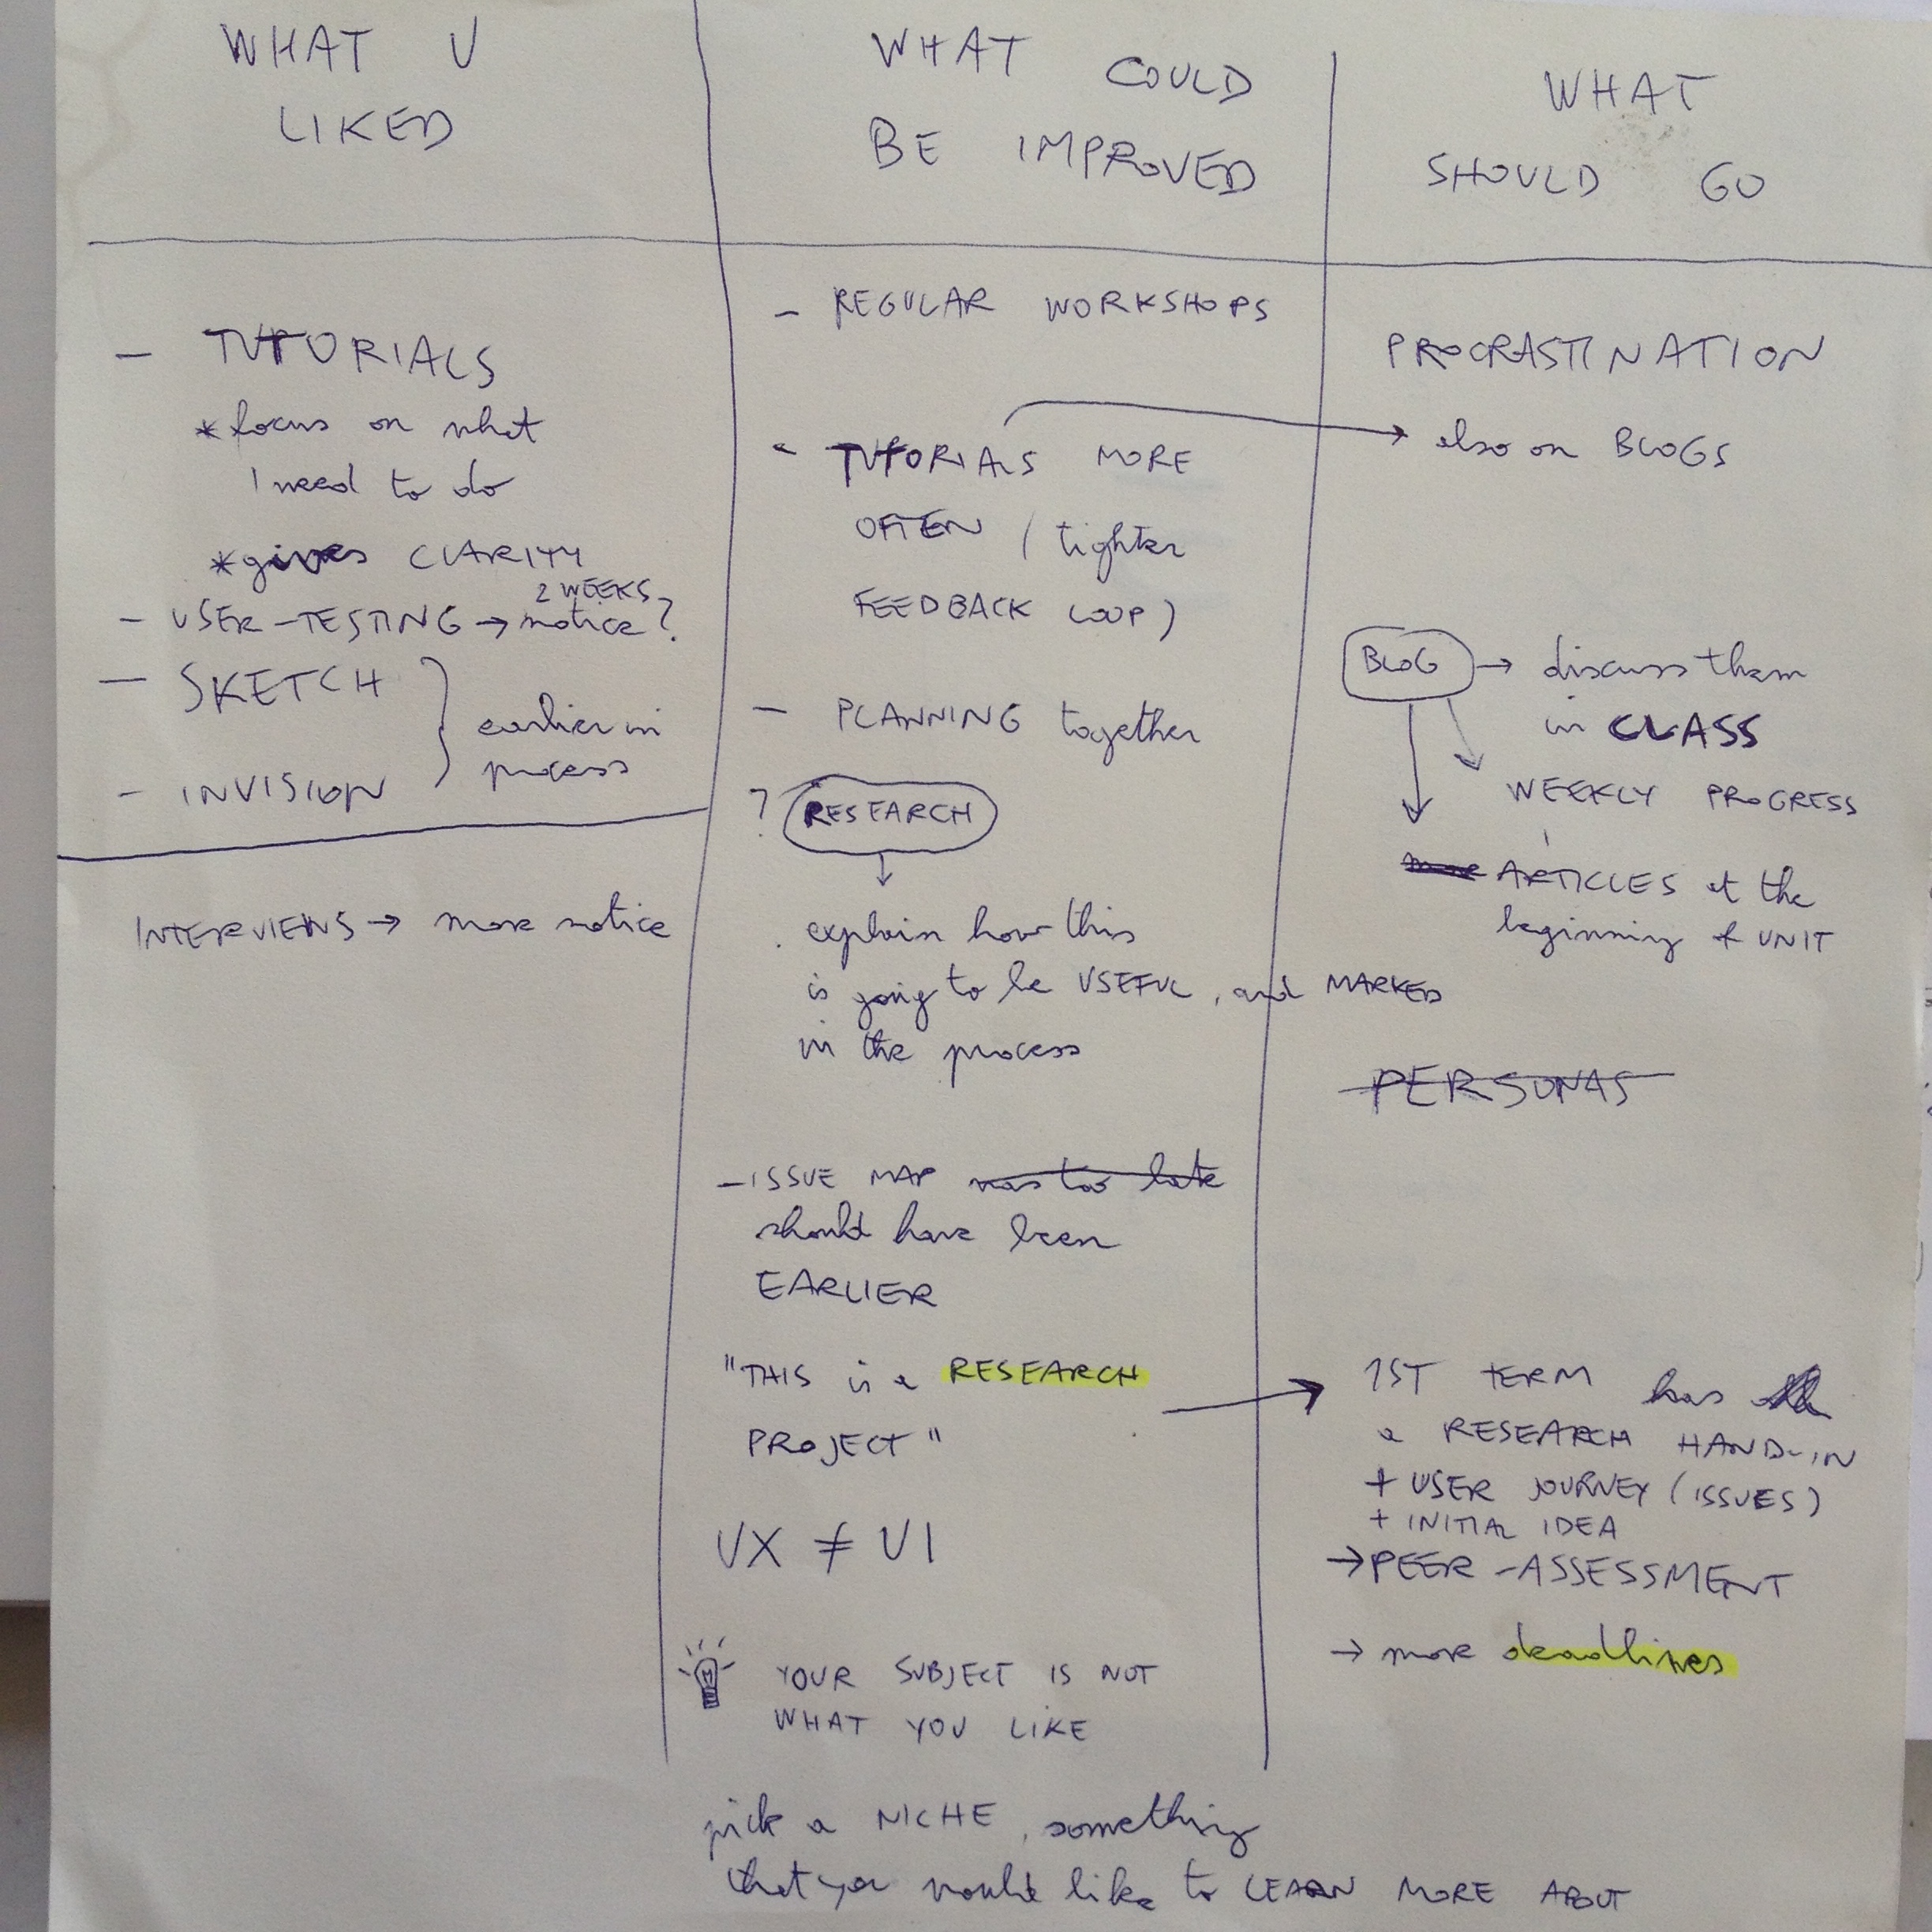 WHAT U
LIKED
– TUTORIALS
* focus on what
I need to do
* gives CLARITY
– USER-TESTING → 2 WEEKS notice?
– SKETCH
– INVISION
earlier in
process
INTERVIEWS → more notice
WHAT COULD
BE IMPROVED
– REGULAR WORKSHOPS
- TUTORIALS MORE
OFTEN (tighter
FEEDBACK LOOP)
– PLANNING together
? RESEARCH
explain how this
is going to be USEFUL, and MARKED
in the process
– ISSUE MAP was too late
should have been
EARLIER
"THIS is a RESEARCH
PROJECT"
UX ≠ UI
YOUR SUBJECT IS NOT
WHAT YOU LIKE
pick a NICHE, something
that you would like to LEARN MORE ABOUT
WHAT
SHOULD GO
PROCRASTINATION
→ also on BLOGS
BLOG → discuss them
in CLASS
WEEKLY PROGRESS
ARTICLES at the
beginning of UNIT
PERSONAS
1ST TERM has
a RESEARCH HAND-IN
+ USER JOURNEY (ISSUES)
+ INITIAL IDEA
→ PEER-ASSESSMENT
→ more deadlines